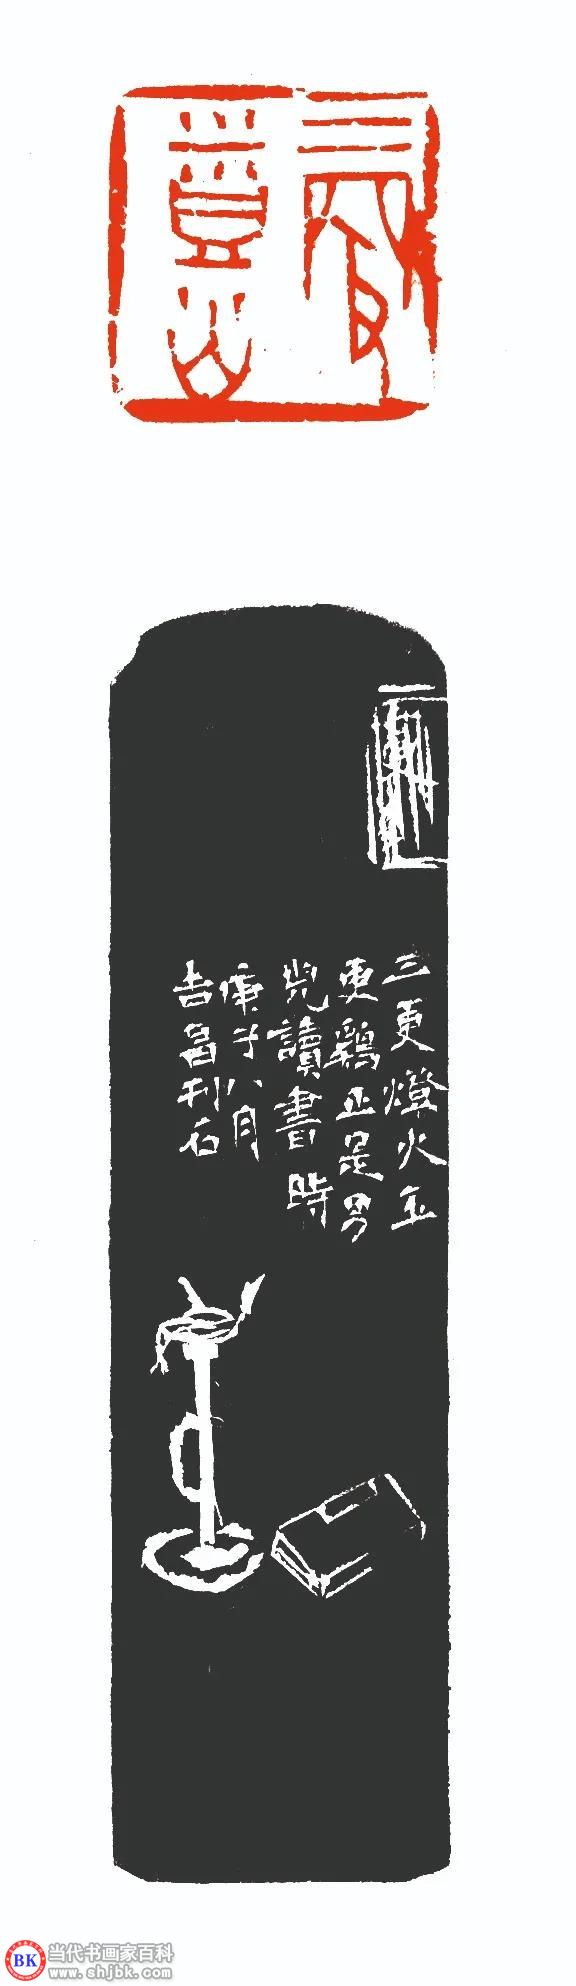 三更
登火
三更燈火五
更鷄正是男
兒讀書時
庚子八月
吉昌刊石
BK
当代书画家百科
www.shjbk.com